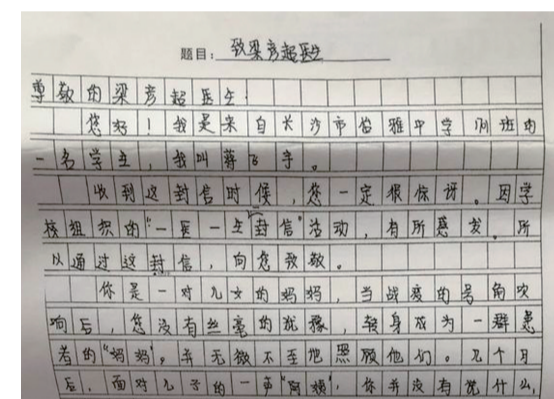 题目：致梁彦超医生
尊敬的梁彦超医生：
您好！我是来自长沙市怡雅中学班的
一名学生，我叫蒋飞宇。
收到这封信时候，您一定很惊讶。因学
校组织的“一医一生一封信”活动，有所感发。所
以通过这封信，向您致敬。
你是一对儿女的妈妈，当战疫的号角吹
响后，您没有丝毫的犹豫，转身成为一群患
者的“妈妈”。并无微不至地照顾他们。几个月
后，面对儿子的一声“阿姨”，你并没有说什么，